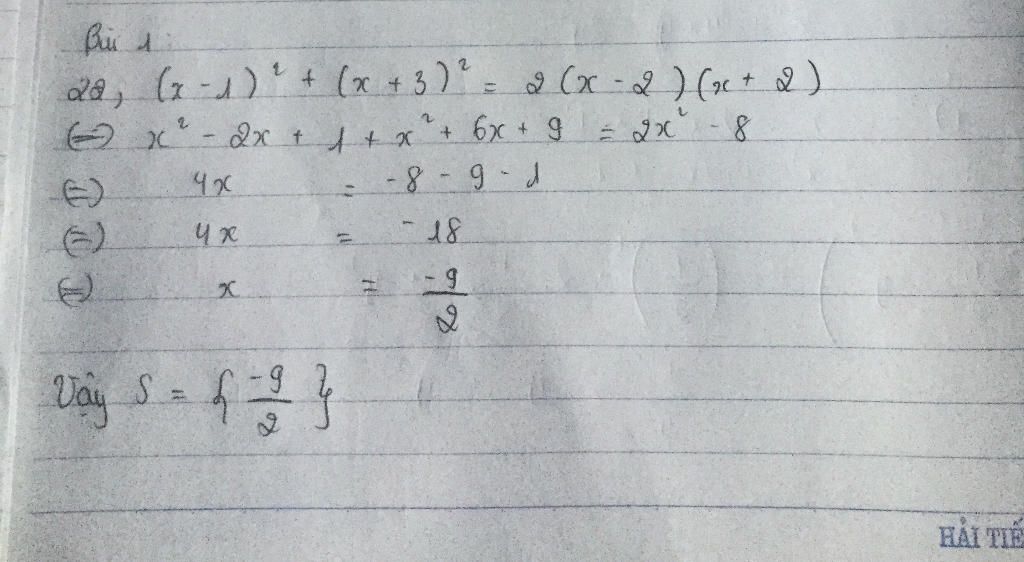 Bài 1:
22, (x - 1)² + (x + 3)² = 2(x - 2)(x + 2)
(=) x² - 2x + 1 + x² + 6x + 9 = 2x² - 8
(=) 4x = -8 - 9 - 1
(=) 4x = -18
(=) x = -9/2
Vậy S = { -9/2 }
HẢI TIẾ